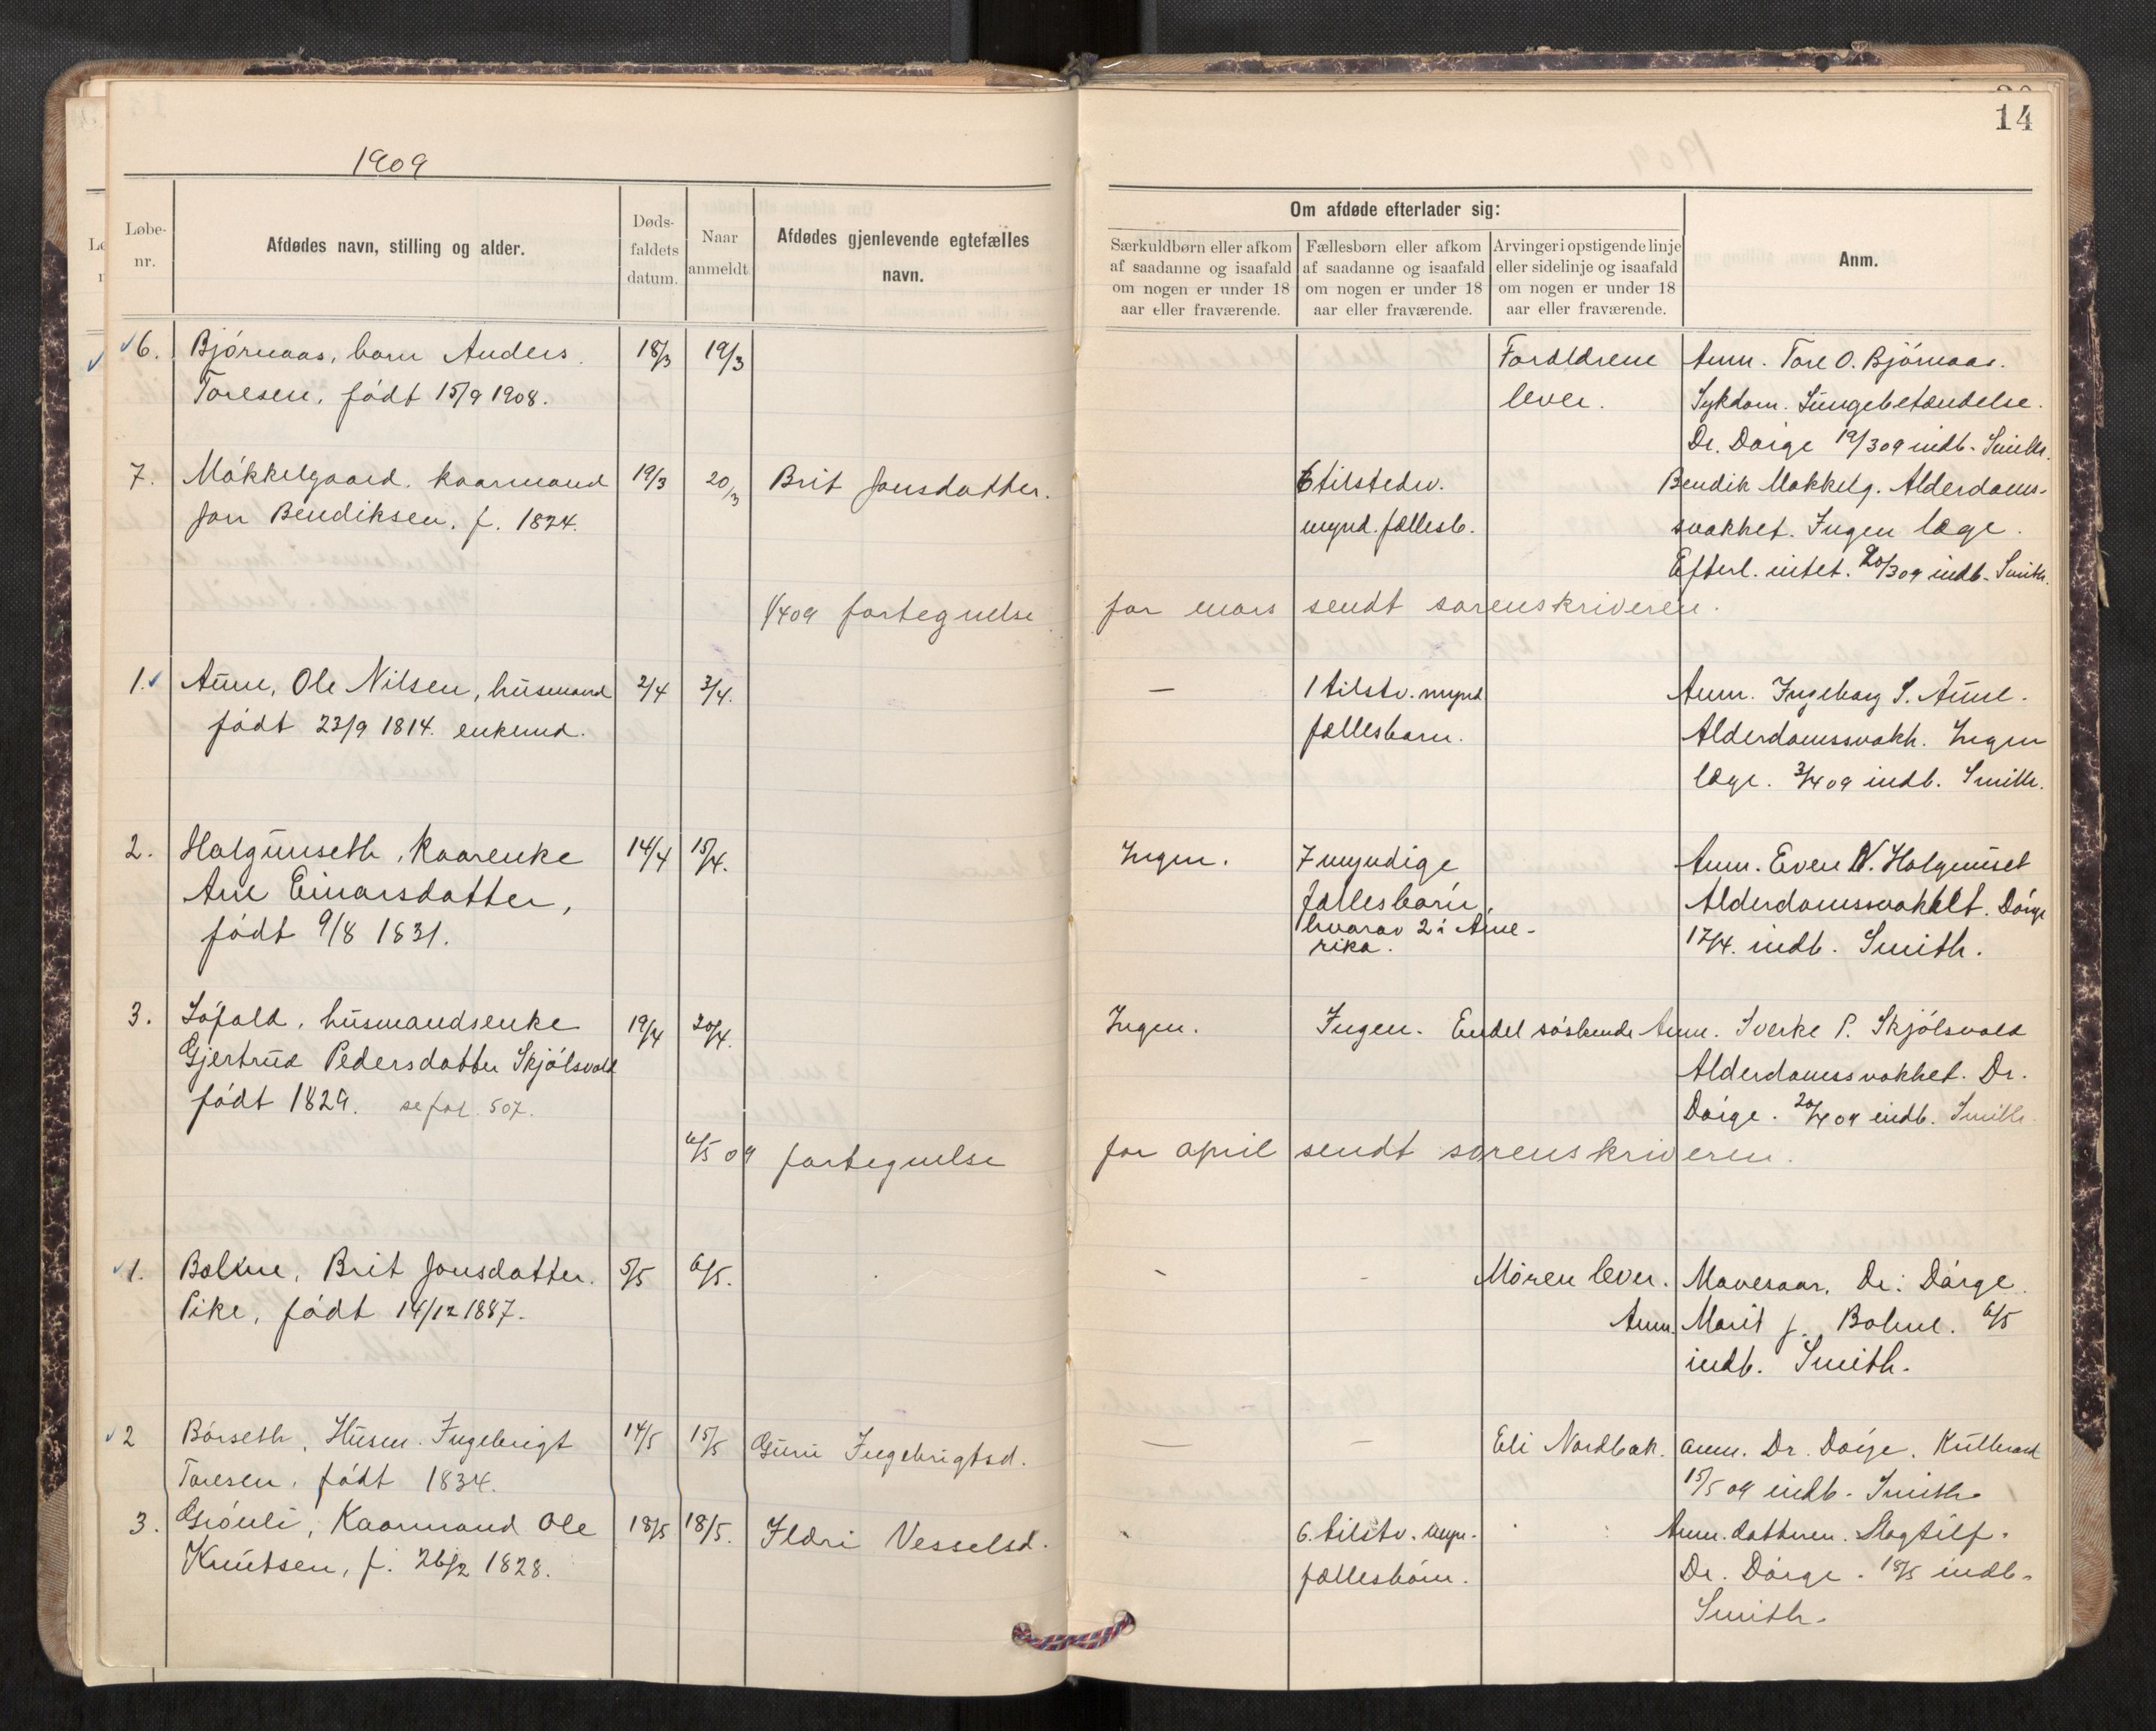 14
1909
Løbe-
nr.
Afdødes navn, stilling og alder.
Døds-
faldets
datum.
Naar
anmeldt.
Afdødes gjenlevende egtefælles
navn.
Om afdøde efterlader sig:
Særkuldbørn eller afkom
af saadanne og isaafald
om nogen er under 18
aar eller fraværende.
Fællesbørn eller afkom
af saadanne og isaafald
om nogen er under 18
aar eller fraværende.
Arvinger i opstigende linje
eller sidelinje og isaafald
om nogen er under 18
aar eller fraværende.
Anm.
6. Bjørnaas, barn Anders 18/3 19/3 Forældrene Anm. Tore O. Bjørnaas.
Toresen, født 15/9 1908. lever. Sykdom. Lungebetændelse.
Dr. Dørge 19/3 09 indb. Smith.
7. Møkkelgaard, kaarmand 19/3 20/3 Brit Jonsdatter. 6 tilstedv. Bendik Møkkelg. Alderdoms-
Jon Bendiksen, f. 1824. mynd. fællesb. svakhet. Ingen læge.
Efterl. intet. 20/3 09 indb. Smith.
1/4 09 fortegnelse for mars sendt sorenskriveren.
1. Aune, Ole Nilsen, husmand 2/4 3/4. — 1 tilstv. mynd Anm. Ingeborg S. Aune.
født 23/9 1814. enkemd. fællesbarn. Alderdomssvakh. Ingen
læge. 3/4 09 indb. Smith.
2. Halgunseth, kaarenke 14/4 15/4. Ingen. 7 myndige Anm. Even N. Halgunset
Ane Einarsdatter, fællesbørn, Alderdomssvakhet. Dørge
født 9/8 1831. hvorav 2 i Ame-
rika. 17/4. indb. Smith.
3. Løfald, husmandsenke 19/4 20/4. Ingen. Ingen. Endel søskende Anm. Sverke P. Skjølsvold
Gjertrud Pedersdatter Skjølsvold Alderdomssvakhet. Dr.
født 1829. se fol. 507. Dørge. 20/4 09 indb. Smith.
6/5 09 fortegnelse for april sendt sorenskriveren.
1. Bolkne, Brit Jonsdatter. 5/5 6/5. - - Moren lever. Mavesaar. Dr. Dørge.
Pike, født 14/12 1887. Anm. Marit J. Bolme. 6/5
indb. Smith.
2 Børseth, Husm. Ingebrigt 14/5 15/5 Guru Ingebrigtsd. — — Eli Nordbæk. anm. Dr. Dørge.
Toresen, født 1834. 15/5 09 indb. Smith
3. Grønli, Kaarmand Ole 18/5 18/5. Ildri Vesselsd. 6. tilstv. myn. Anm. datteren. Slagtilf.
Knutsen, f. 26/2 1828. fællesbørn. Dr. Dørge. 18/5 indb.
Smith.